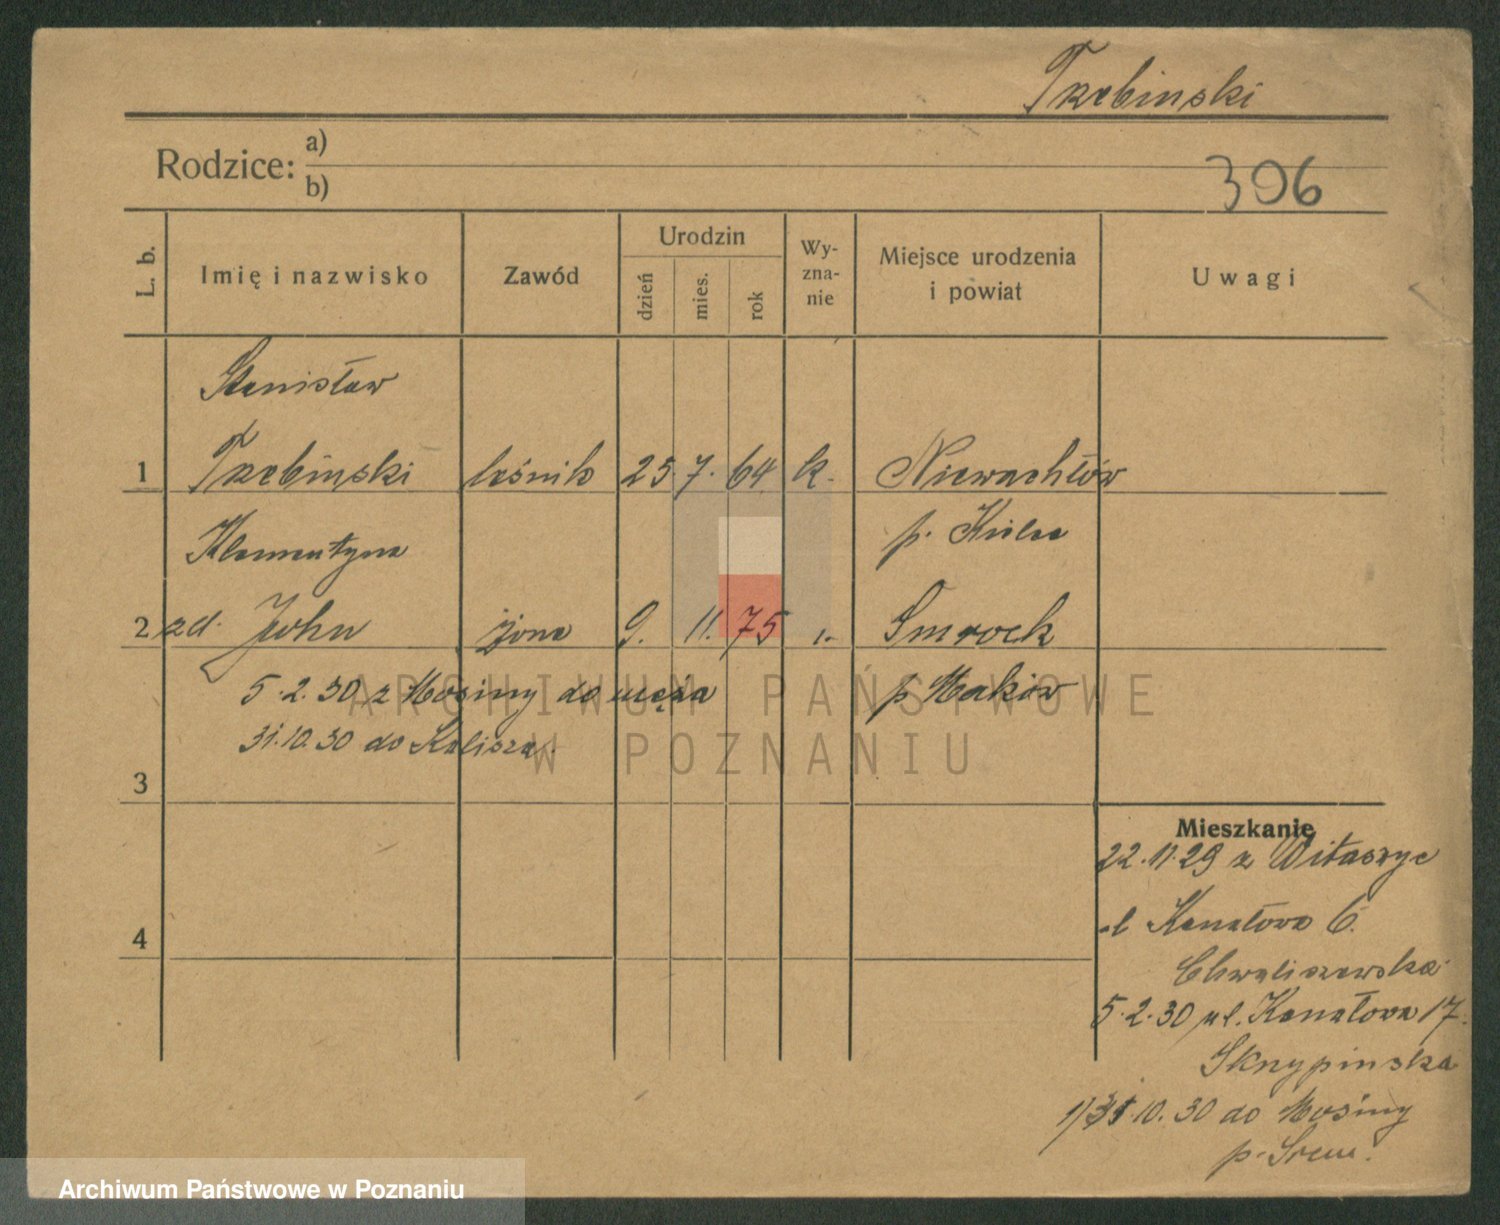 Trzebinski
Rodzice: a)
b)
396
L. b.
Imię i nazwisko
Zawód
Urodzin
dzień
mies.
rok
Wy-
zna-
nie
Miejsce urodzenia
i powiat
Uwagi
Stanisław
1 Trzebinski leśnik 25. 7. 64. k. Niewachłów
Klementyna p. Kielce
2 zd. John żona 9. 11. 75 Smrock
5.2.30 z Mosiny do męża p. Maków
31.10.30 do Kalisza.
3
4
Mieszkanie
22.11.29 z Witaszyc
ul Kanałowa 6.
Chwaliszewska
5.2.30 ul. Kanałowa 17.
Skrzypinska
1) 31.10.30 do Mosiny
p. Srem.
ARCHIWUM PAŃSTWOWE
W POZNANIU
Archiwum Państwowe w Poznaniu